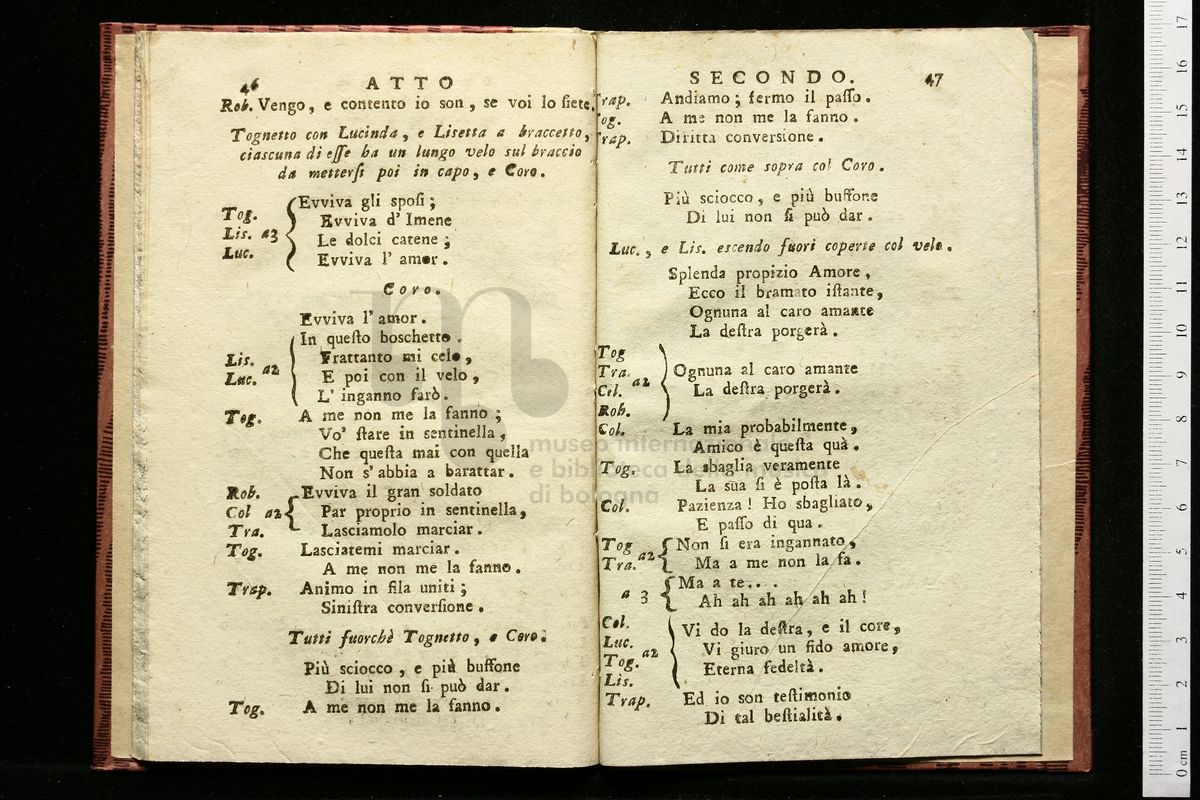 46 ATTO
Rob. Vengo, e contento io son, se voi lo ſiete.
Tognetto con Lucinda, e Lisetta a braccetto,
ciascuna di eſſe ha un lungo velo sul braccio
da metterſi poi in capo, e Coro.
Tog. Lis. a3 Luc.
Evviva gli spoſi;
Evviva d' Imene
Le dolci catene;
Evviva l' amor.
Coro.
Evviva l' amor.
Lis. Luc. a2
In queſto boschetto.
Frattanto mi celo,
E poi con il velo,
L' inganno farò.
Tog. A me non me la fanno;
Vo' ſtare in sentinella,
Che queſta mai con quella
Non s' abbia a barattar.
Rob. Evviva il gran soldato
Col a2 Par proprio in sentinella,
Tra. Lasciamolo marciar.
Tog. Lasciatemi marciar.
A me non me la fanno.
Trap. Animo in fila uniti;
Siniſtra converſione.
Tutti fuorchè Tognetto, e Coro.
Più sciocco, e più buffone
Di lui non ſi può dar.
Tog. A me non me la fanno.
SECONDO. 47
Trap. Andiamo; fermo il paſſo.
Tog. A me non me la fanno.
Trap. Diritta conversione.
Tutti come sopra col Coro.
Più sciocco, e più buffone
Di lui non ſi può dar.
Luc., e Lis. escendo fuori coperte col velo.
Splenda propizio Amore,
Ecco il bramato iſtante,
Ognuna al caro amante
La deſtra porgerà.
Tog Tra. Col. Rob. a2
Ognuna al caro amante
La deſtra porgerà.
Col. La mia probabilmente,
Amico è queſta quà.
Tog. La sbaglia veramente
La sua ſi è poſta là.
Col. Pazienza! Ho sbagliato,
E paſſo di qua.
Tog Tra. a2
Non ſi era ingannato,
Ma a me non la fa.
a 3 Ma a te....
Ah ah ah ah ah ah!
Col. Luc. Tog. Lis. a2
Vi do la deſtra, e il core,
Vi giuro un fido amore,
Eterna fedeltà.
Trap. Ed io son teſtimonio
Di tal beſtialità.
museo internazionale
e biblioteca della musica
di bologna
0 cm 1 2 3 4 5 6 7 8 9 10 11 12 13 14 15 16 17